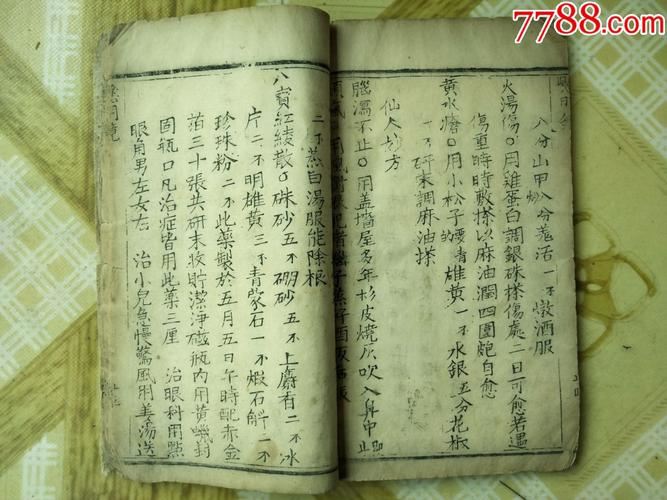 7788.com
八分山甲八分羗活一不燉酒服
火湯傷〇用雞蛋白調銀硃搽傷處二日可愈若遇
傷重時時敷搽以麻油潤四圍皰自愈
黄水瘡〇用小松子的雄黄一不水銀五分花椒
一不研末調麻油搽
仙人妙方
腦漏不止〇用蓋墻屋多年杉皮燒灰吹入鼻中止
二不蒸白湯服能除根
八寳紅綾散〇硃砂五不硼砂五不上麝有二不冰
片二不明雄黄三不青蒙石一不蝦石解一不
珍珠粉二不此藥製於五月五日午時配赤金
箔三十張共研末收貯潔淨磁瓶内用黄蠟封
固瓶口凡治症皆用此藥三厘 治眼科用點
眼角男左女右 治小兒急慢驚風用姜湯送